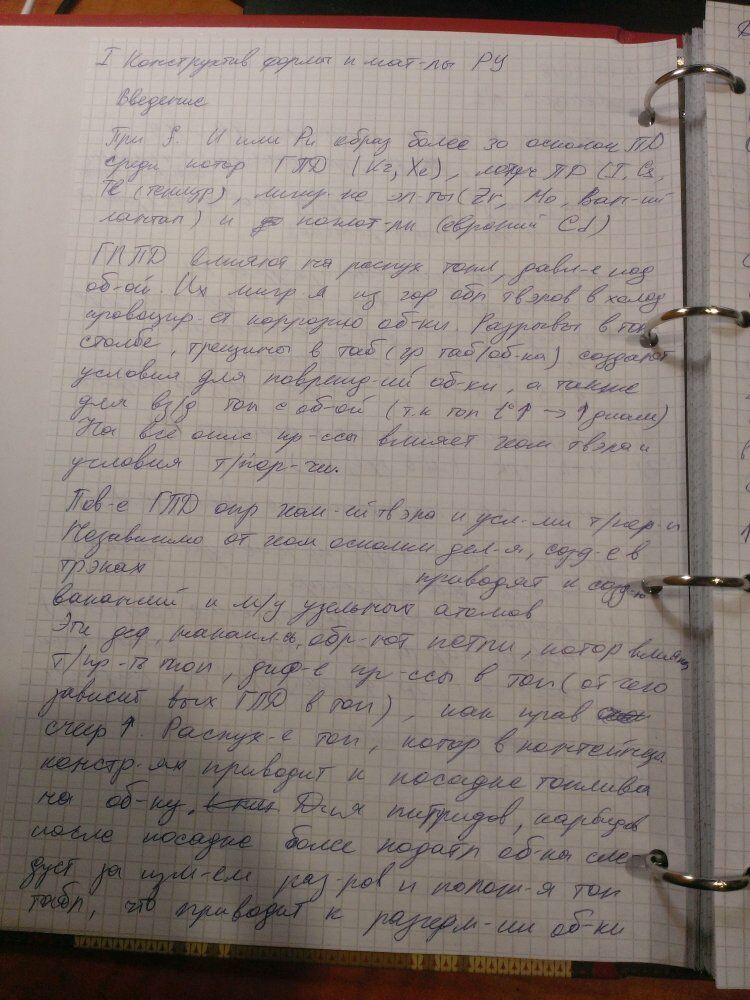 I Конструктив формы и мат-лы РУ
Введение
При f. U или Pu образ более 30 осколков ПД
среди котор ГПД (Kr, Xe), летуч ПД (I, Cs,
Te (теллур), металл-ие эл-ты (Zr, Mo,
лантан) и поглот-ли (европий Cd)
ГПД влияют на распух топл, давл-е под
об-ой. Их мигр-я из гор обл твэлов в холод
провоцир-ет коррозию об-ки. Разрывы в топ
столбе, трещины в таб (гр таб/об-ка) создают
условия для поврежд-ий об-ки, а также
для вз/д топ с об-ой (т.к топ t°↑ → ↑ диам)
На все опис пр-ссы влияет ком твэла и
условия т/пер-чи.
Пов-е ГПД опр ком-ей твэла и усл-ми т/пер-и
Независимо от ком осколки дел-я, созд-е в
трэках приводят к созд-ю
вакансий и м/у узельных атомов
Эти деф, накапл-сь, обр-ют петли, котор влияют
т/пр-ть топ, диф-е пр-ссы в топ (от чего
зависит вых ГПД в топ), как прав
скор ↑. Распух-е топ, котор в контейнер.
констр-ях приводит к посадке топлива
на об-ку. Для нитридов, карбидов
после посадке более податл об-ка сле
дует за изм-ем раз-ров и полож-я топ
табл, что приводит к разгерм-ии об-ки